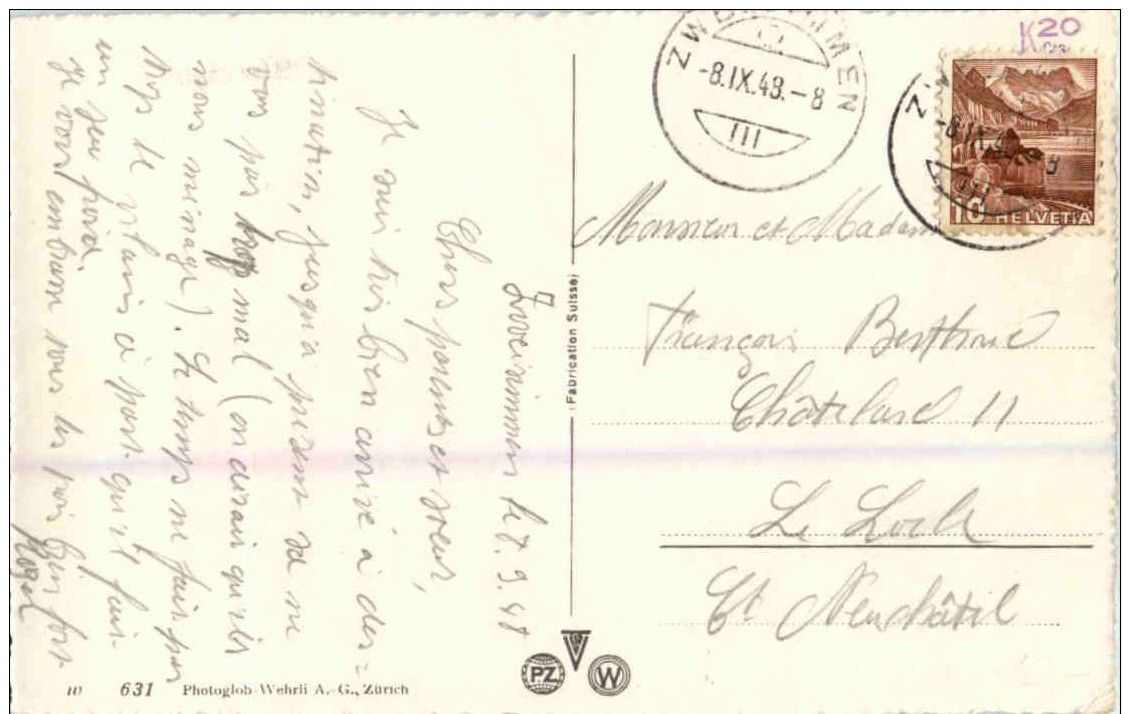 Zweisimmen le 7. 9. 48
Chers parents et soeur,
Je suis très bien arrivé à des-
tination, jusqu'à présent va ne
pas mal (on dirait qu'ils
nous ménage). Le temps ne fait pas
trop le vilain à part qu'il fait
un peu froid.
Je vous embrasse tous les trois bien fort
Roger
ZWEISIMMEN
-8.IX.48.-8
III
K20
10 HELVETIA
Monsieur et Madame
François Berthoud
Châtelard 11
Le Locle
Ct Neuchâtel
Fabrication Suisse
PZ
W
631 Photoglob-Wehrli A.-G., Zürich